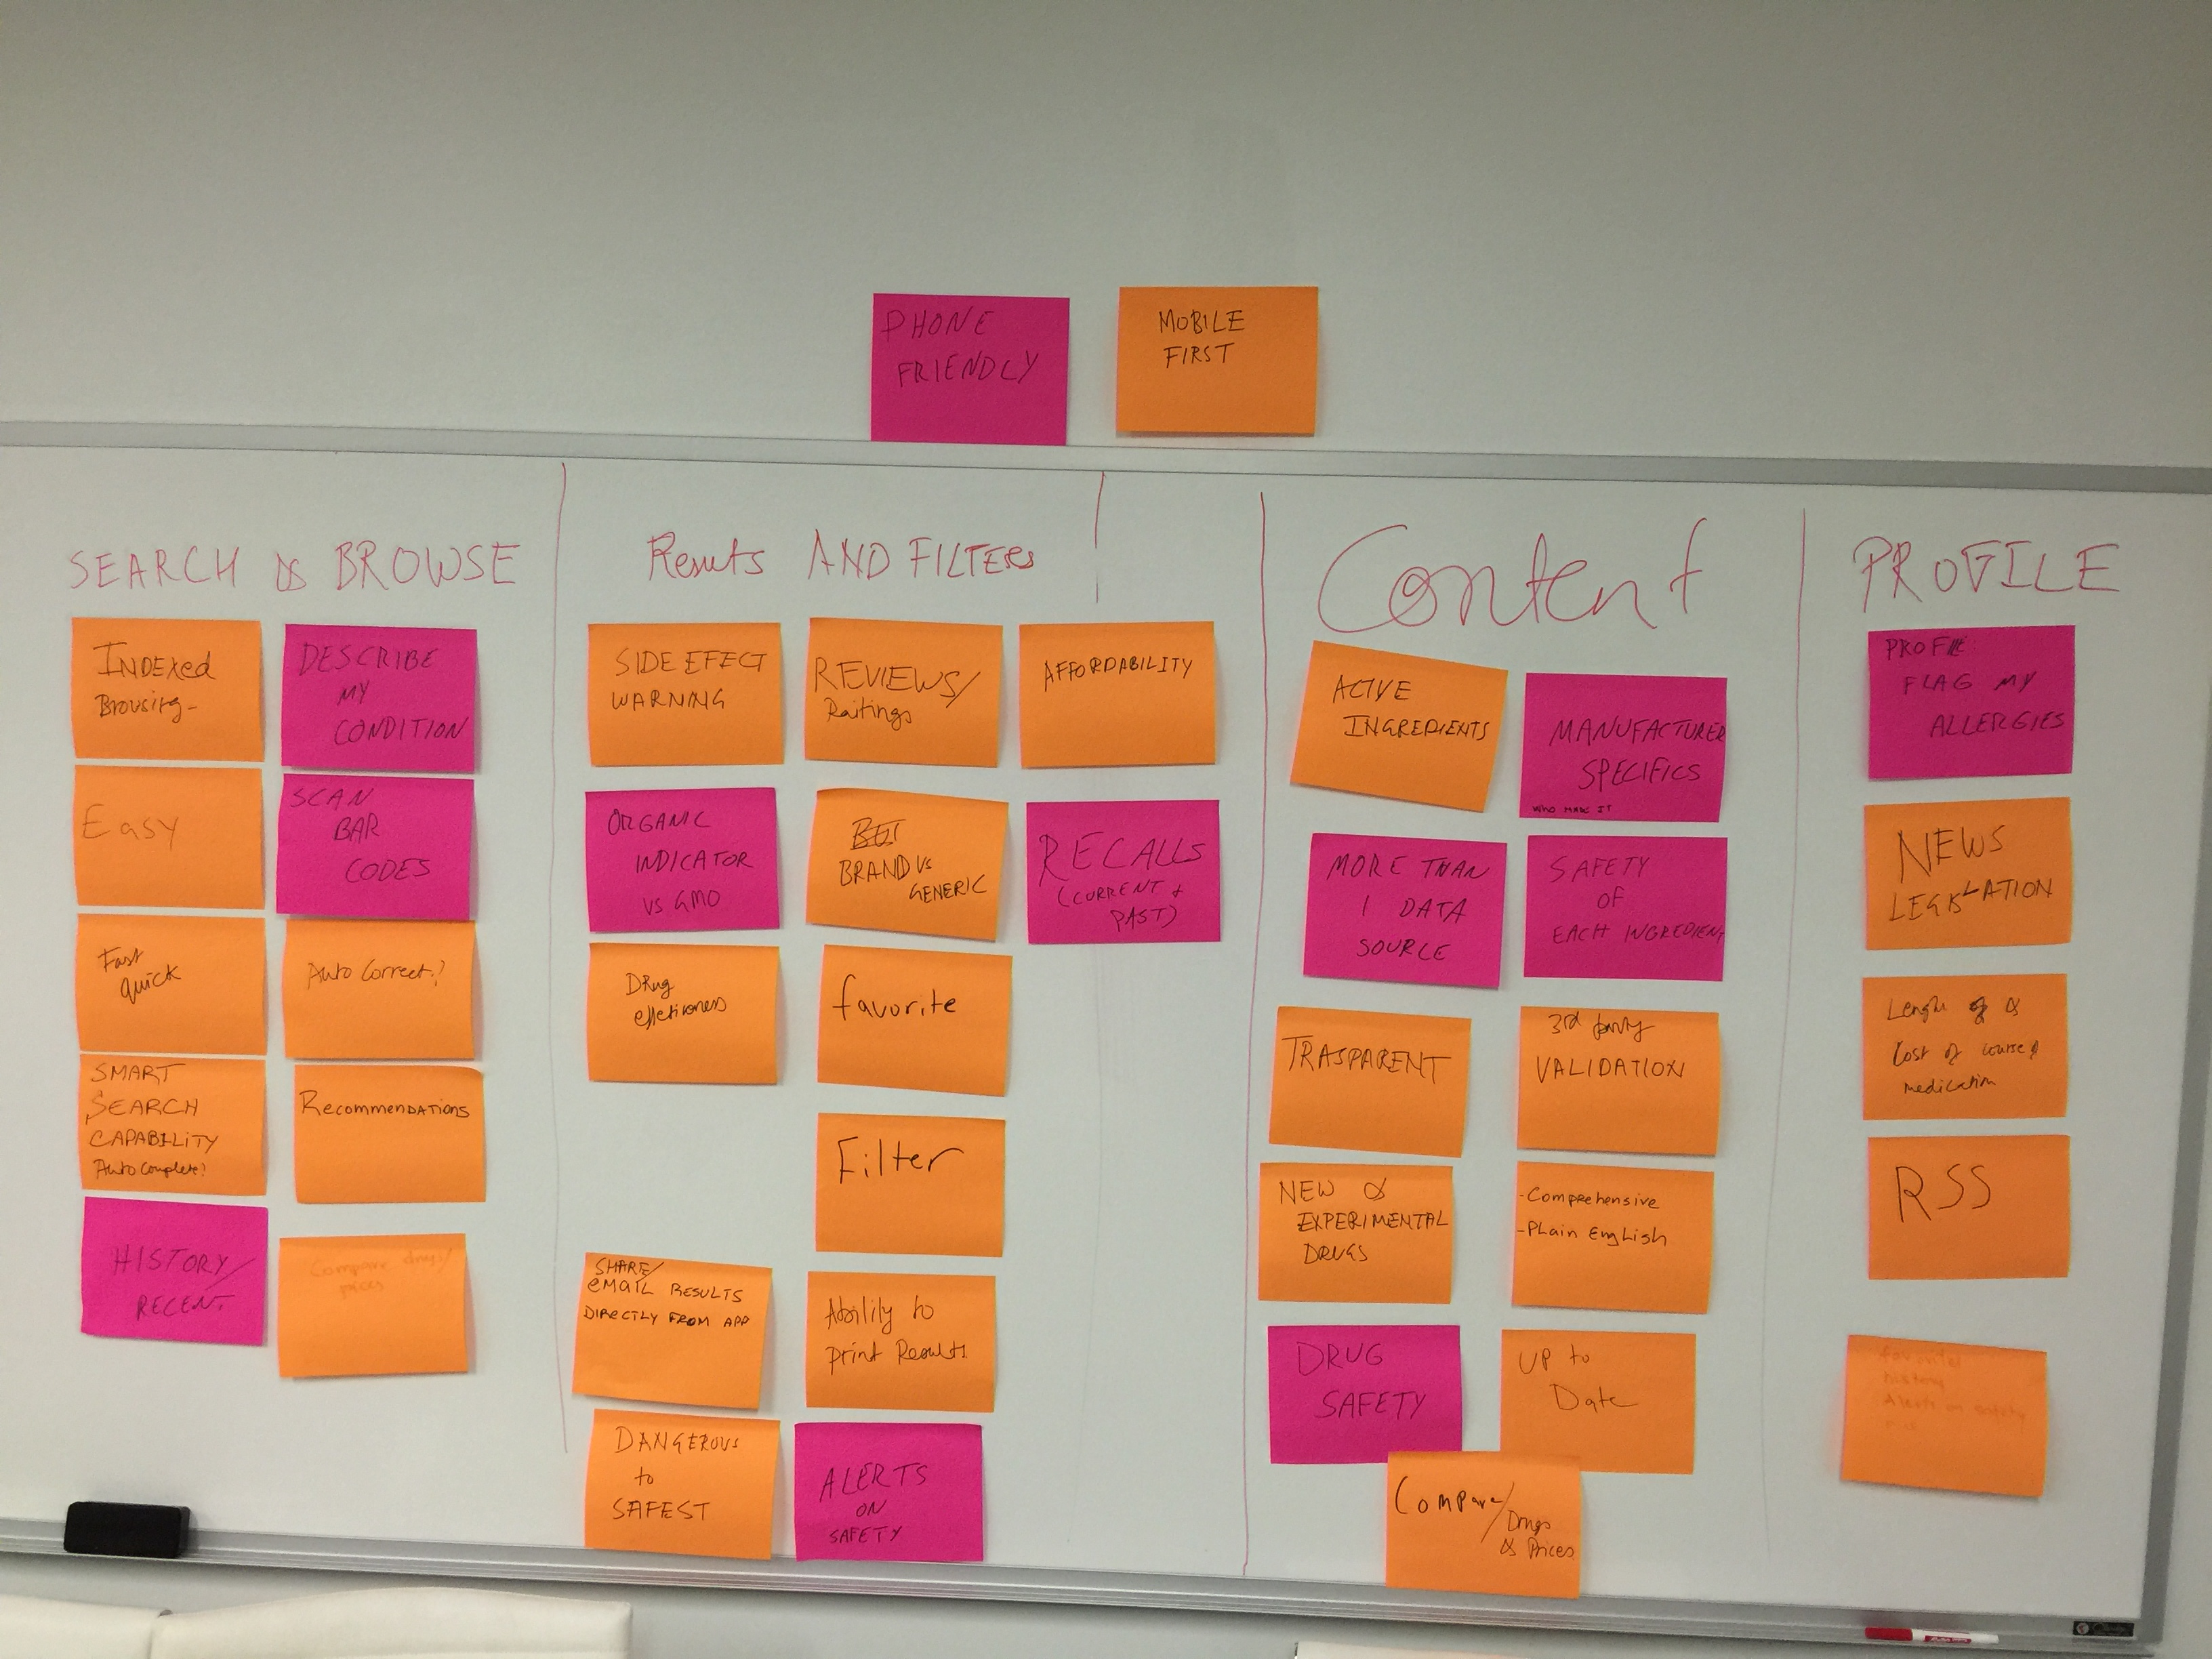 PHONE
FRIENDLY
MOBILE
FIRST
SEARCH & BROWSE
INDEXed
Browsing-
DESCRIBE
MY
CONDITION
Easy
SCAN
BAR
CODES
Fast
quick
Auto Correct?
SMART
SEARCH
CAPABILITY
Auto Complete?
RecommenDATIONs
HISTORY/
RECENT
Compare drugs/
prices
Results AND FILTERs
SIDE EFECT
WARNING
REVIEWS/
Raitings
AFFORDABILITY
ORGANIC
INDICATOR
VS GMO
BRAND Vs
GENERIC
RECALLS
(CURRENT +
PAST)
DRug
effetiveness
favorite
Filter
SHARE/
eMAIL RESULTS
DIRECTLY FROM APP
Ability to
print Results
DANGEROUS
to
SAFEST
ALERTS
ON
SAFETY
Content
ACTIVE
INGREDIENTS
MANUFACTURER
SPECIFICS
WHO MADE IT
MORE THAN
1 DATA
SOURCE
SAFETY
OF
EACH INGREDIENT
TRASPARENT
3rd party
VALIDATION
NEW &
EXPERIMENTAL
DRUGS
-Comprehensive
-PLain English
DRUG
SAFETY
UP to
Date
Compare/
Drugs
& Prices
PROFILE
PROFILE:
FLAG MY
ALLERGIES
NEWS
LEGISLATION
Length of &
Cost of course of
medication
RSS
favorites
history
Alerts on safety